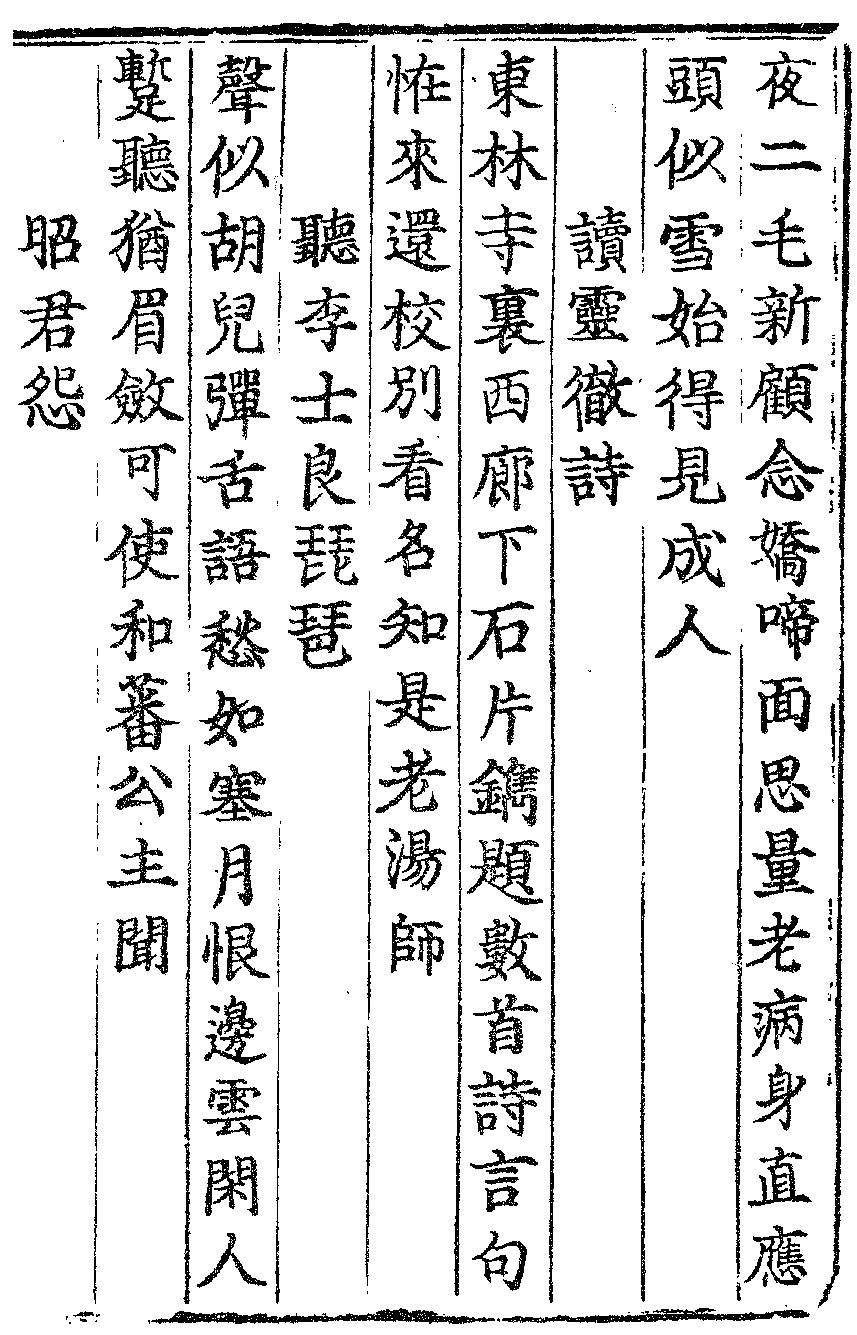 夜二毛新顧念嬌啼面思量老病身直應
頭似雪始得見成人
讀靈徹詩
東林寺裏西廊下石片鐫題數首詩言句
恠來還校別看名知是老湯師
聽李士良琵琶
聲似胡兒彈舌語愁如塞月恨邊雲閑人
蹔聽猶眉斂可使和蕃公主聞
昭君怨